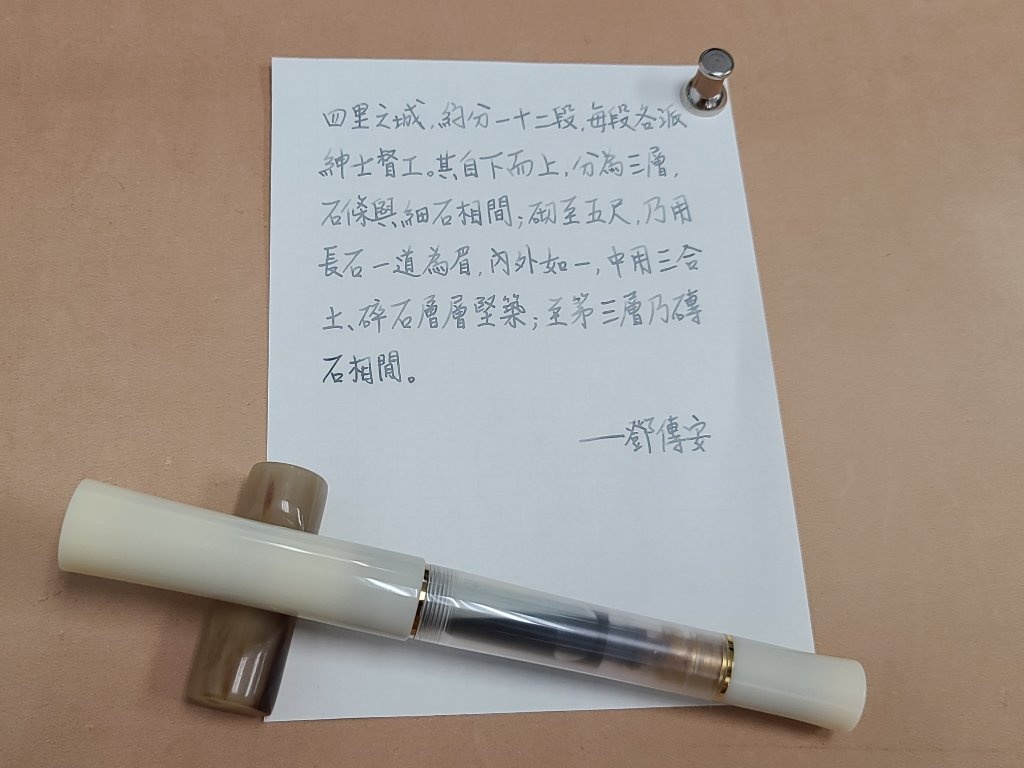 四里之城,約分一十二段,每段各派
紳士督工。其自下而上,分為三層,
石條與細石相間;砌至五尺,乃用
長石一道為眉,內外如一,中用三合
土、碎石層層堅築;至第三層乃磚
石相間。
——鄧傳安